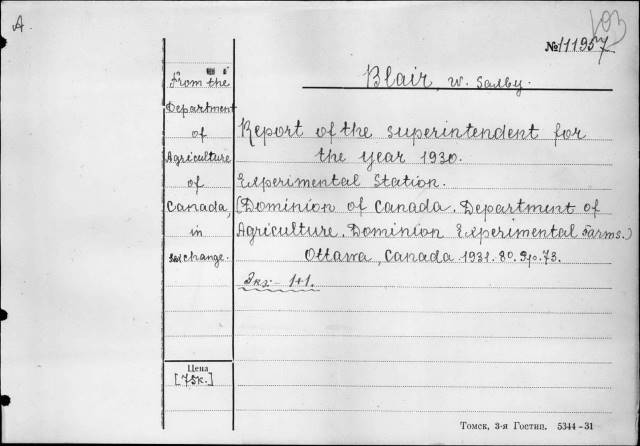 A
103
№111957
Blair, W. Saxby.
From the
Department
of
Agriculture
of
Canada,
in
exchange.
Report of the superintendent for
the year 1930.
Experimental Station.
(Dominion of Canada. Department of
Agriculture. Dominion Experimental Farms.)
Ottawa, Canada 1931. 8º. 73.
Экз.- 1+1.
Цена
[75к.]
Томск, 3-я Гостип. 5344-31